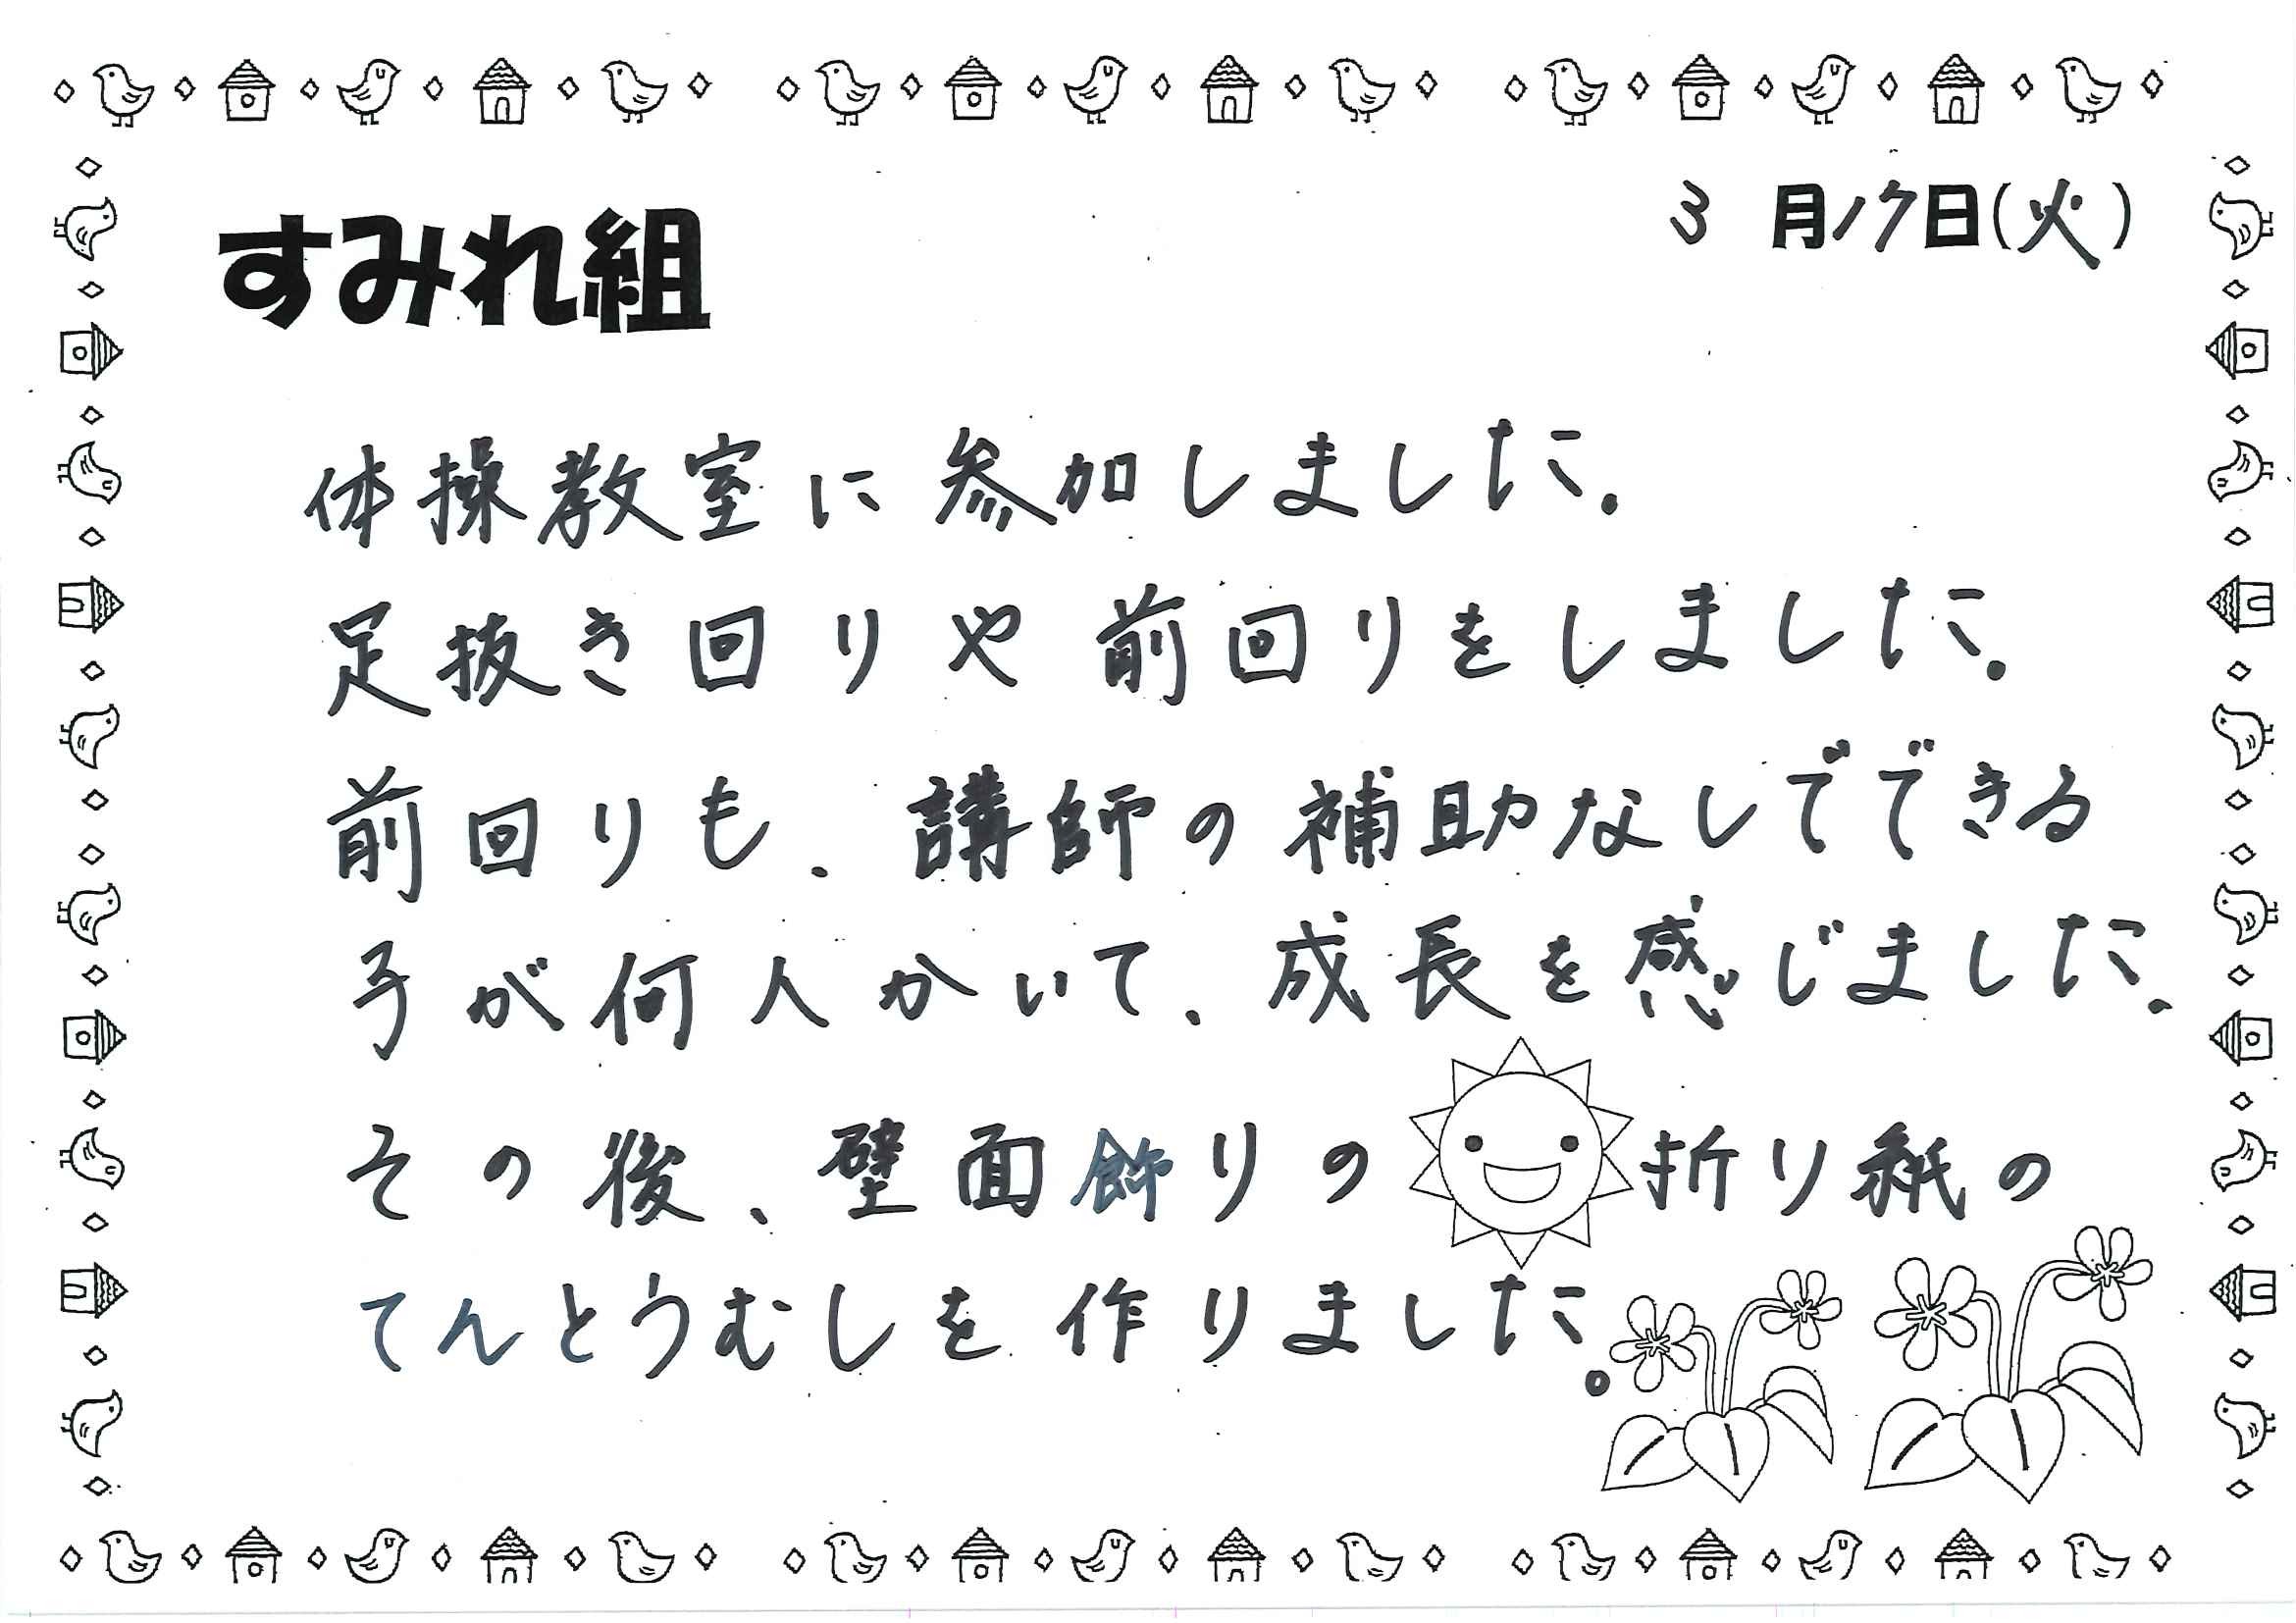 すみれ組
3月17日(火)
体操教室に参加しました。
足抜き回りや前回りをしました。
前回りも、講師の補助なしでできる
子が何人かいて、成長を感じました。
その後、壁面飾りの折り紙の
てんとうむしを作りました。